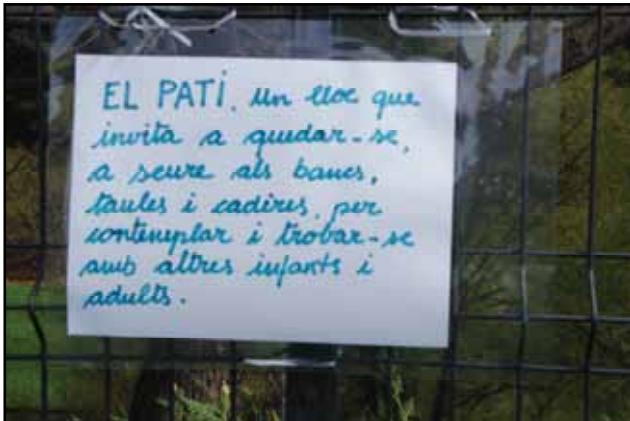 EL PATI, un lloc que
invita a quedar-se,
a seure als bancs,
taules i cadires, per
contemplar i trobar-se
amb altres infants i
adults.